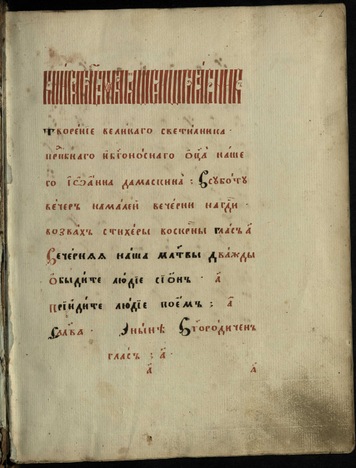 творение великаго светилника ·
прп҃бнаго и бг҃оноснаго ѻц҃а наше
го їѡанна дамаскина : в субботꙋ
вечеръ на малей вечерни на гд҃и
возвахъ стихеры воскр҃ны гласъ а҃
Вечерняя наша мл҃твы дважды
ѻбыдите людїе сїѡнъ · а҃
прїидите людїе поемъ : а҃
Слава · Инынѣ Бг҃ородиченъ
гласъ : а҃ ·
а҃ а҃